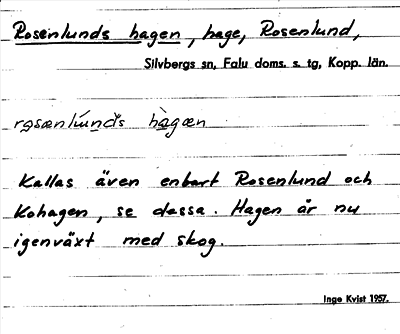 Rosenlunds hagen, hage, Rosenlund,
Silvbergs sn, Falu doms. s. tg, Kopp. län.
Kallas även enbart Rosenlund och
Kohagen, se dessa. Hagen är nu
igenväxt med skog.
Inge Kvist 1957.